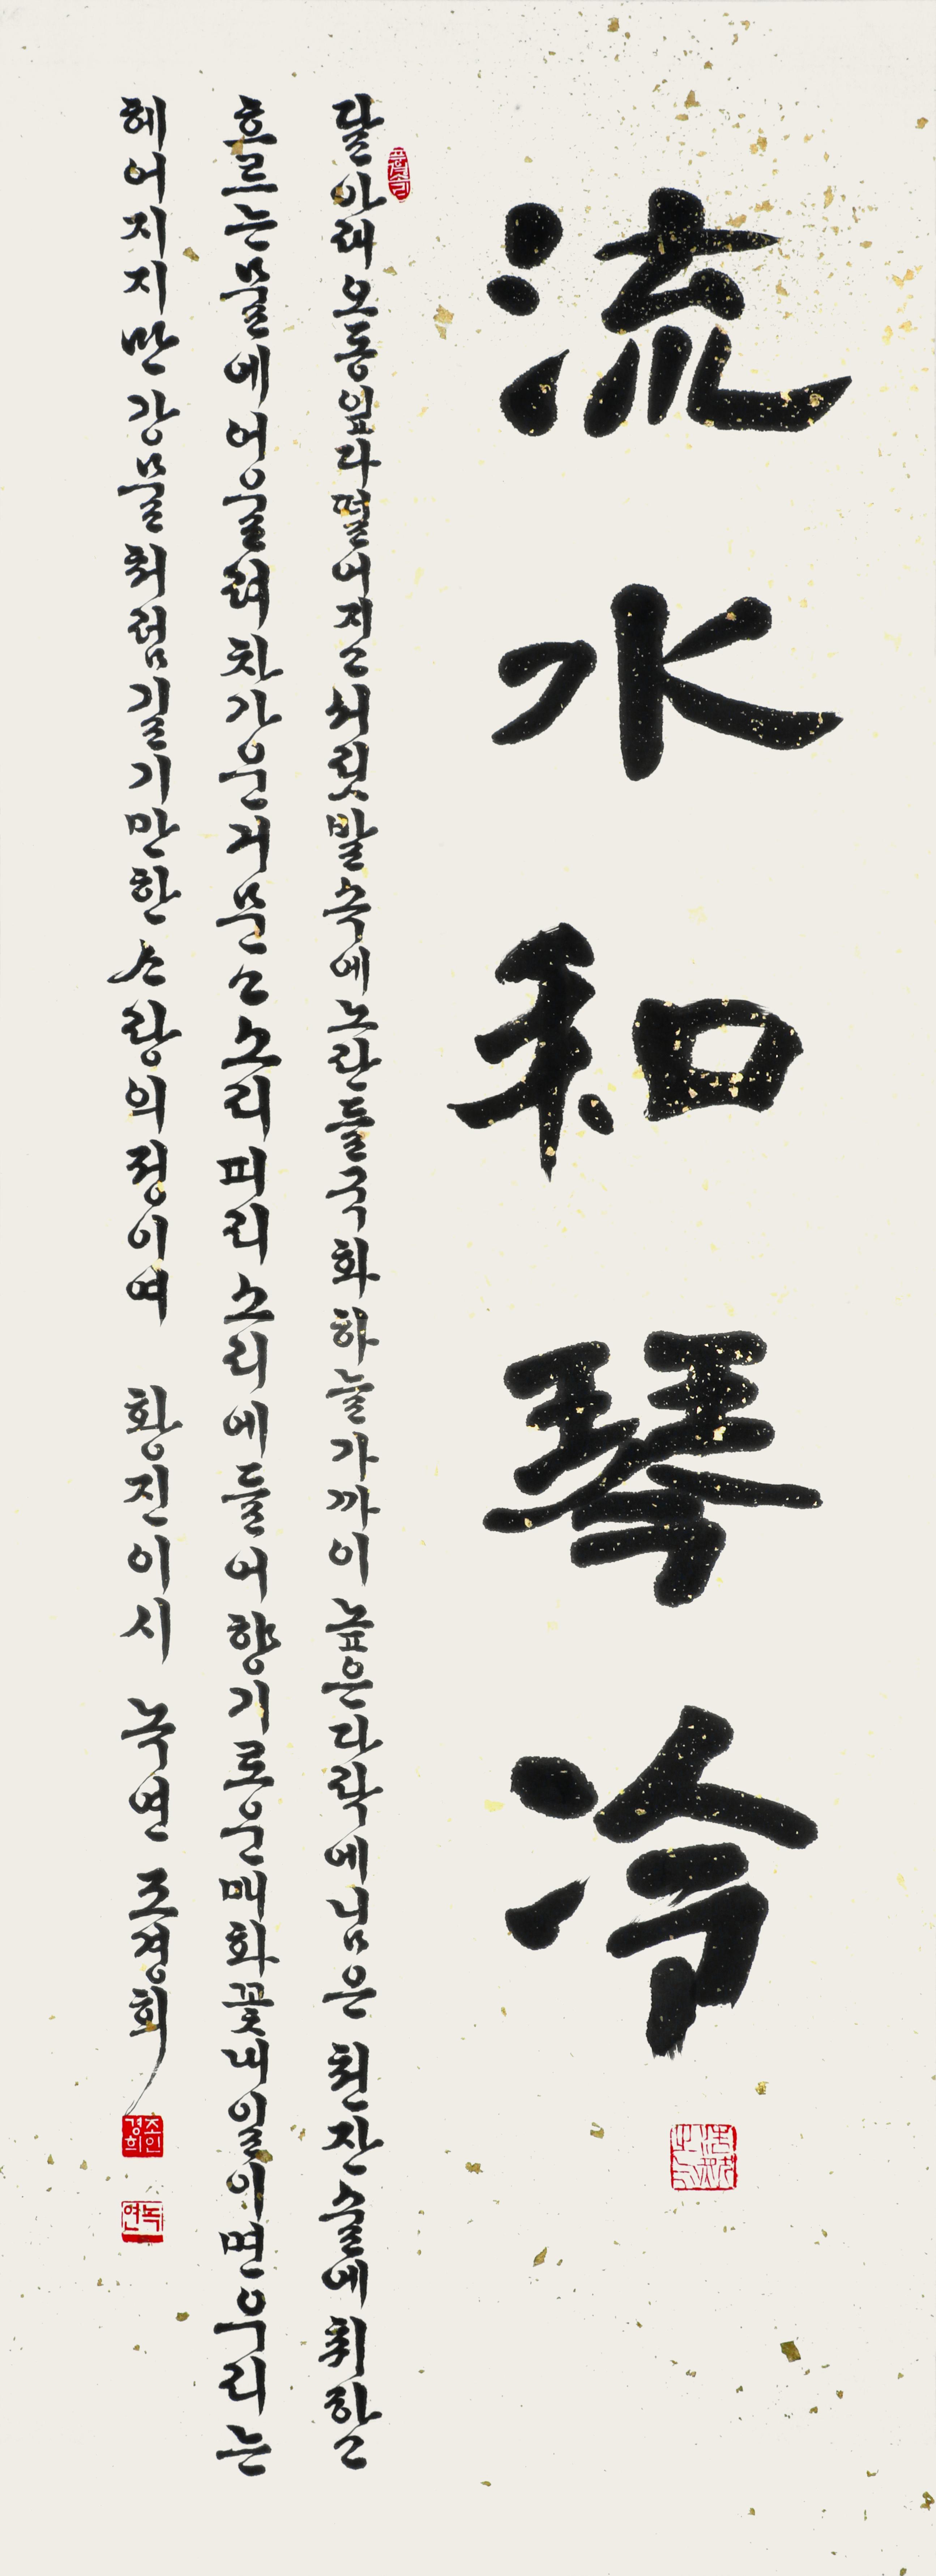 流水和琴冷
달아래오동잎다떨어지고서릿발속에노란들국화하늘가까이높은다락에님은천잔술에취하고
흐르는물에어울려차가운거문고소리피리소리에들어향기로운매화꽃내일이면우리는
헤어지지만강물처럼길기만한사랑의정이여 황진이시 녹연 조경희
조인경희
녹연